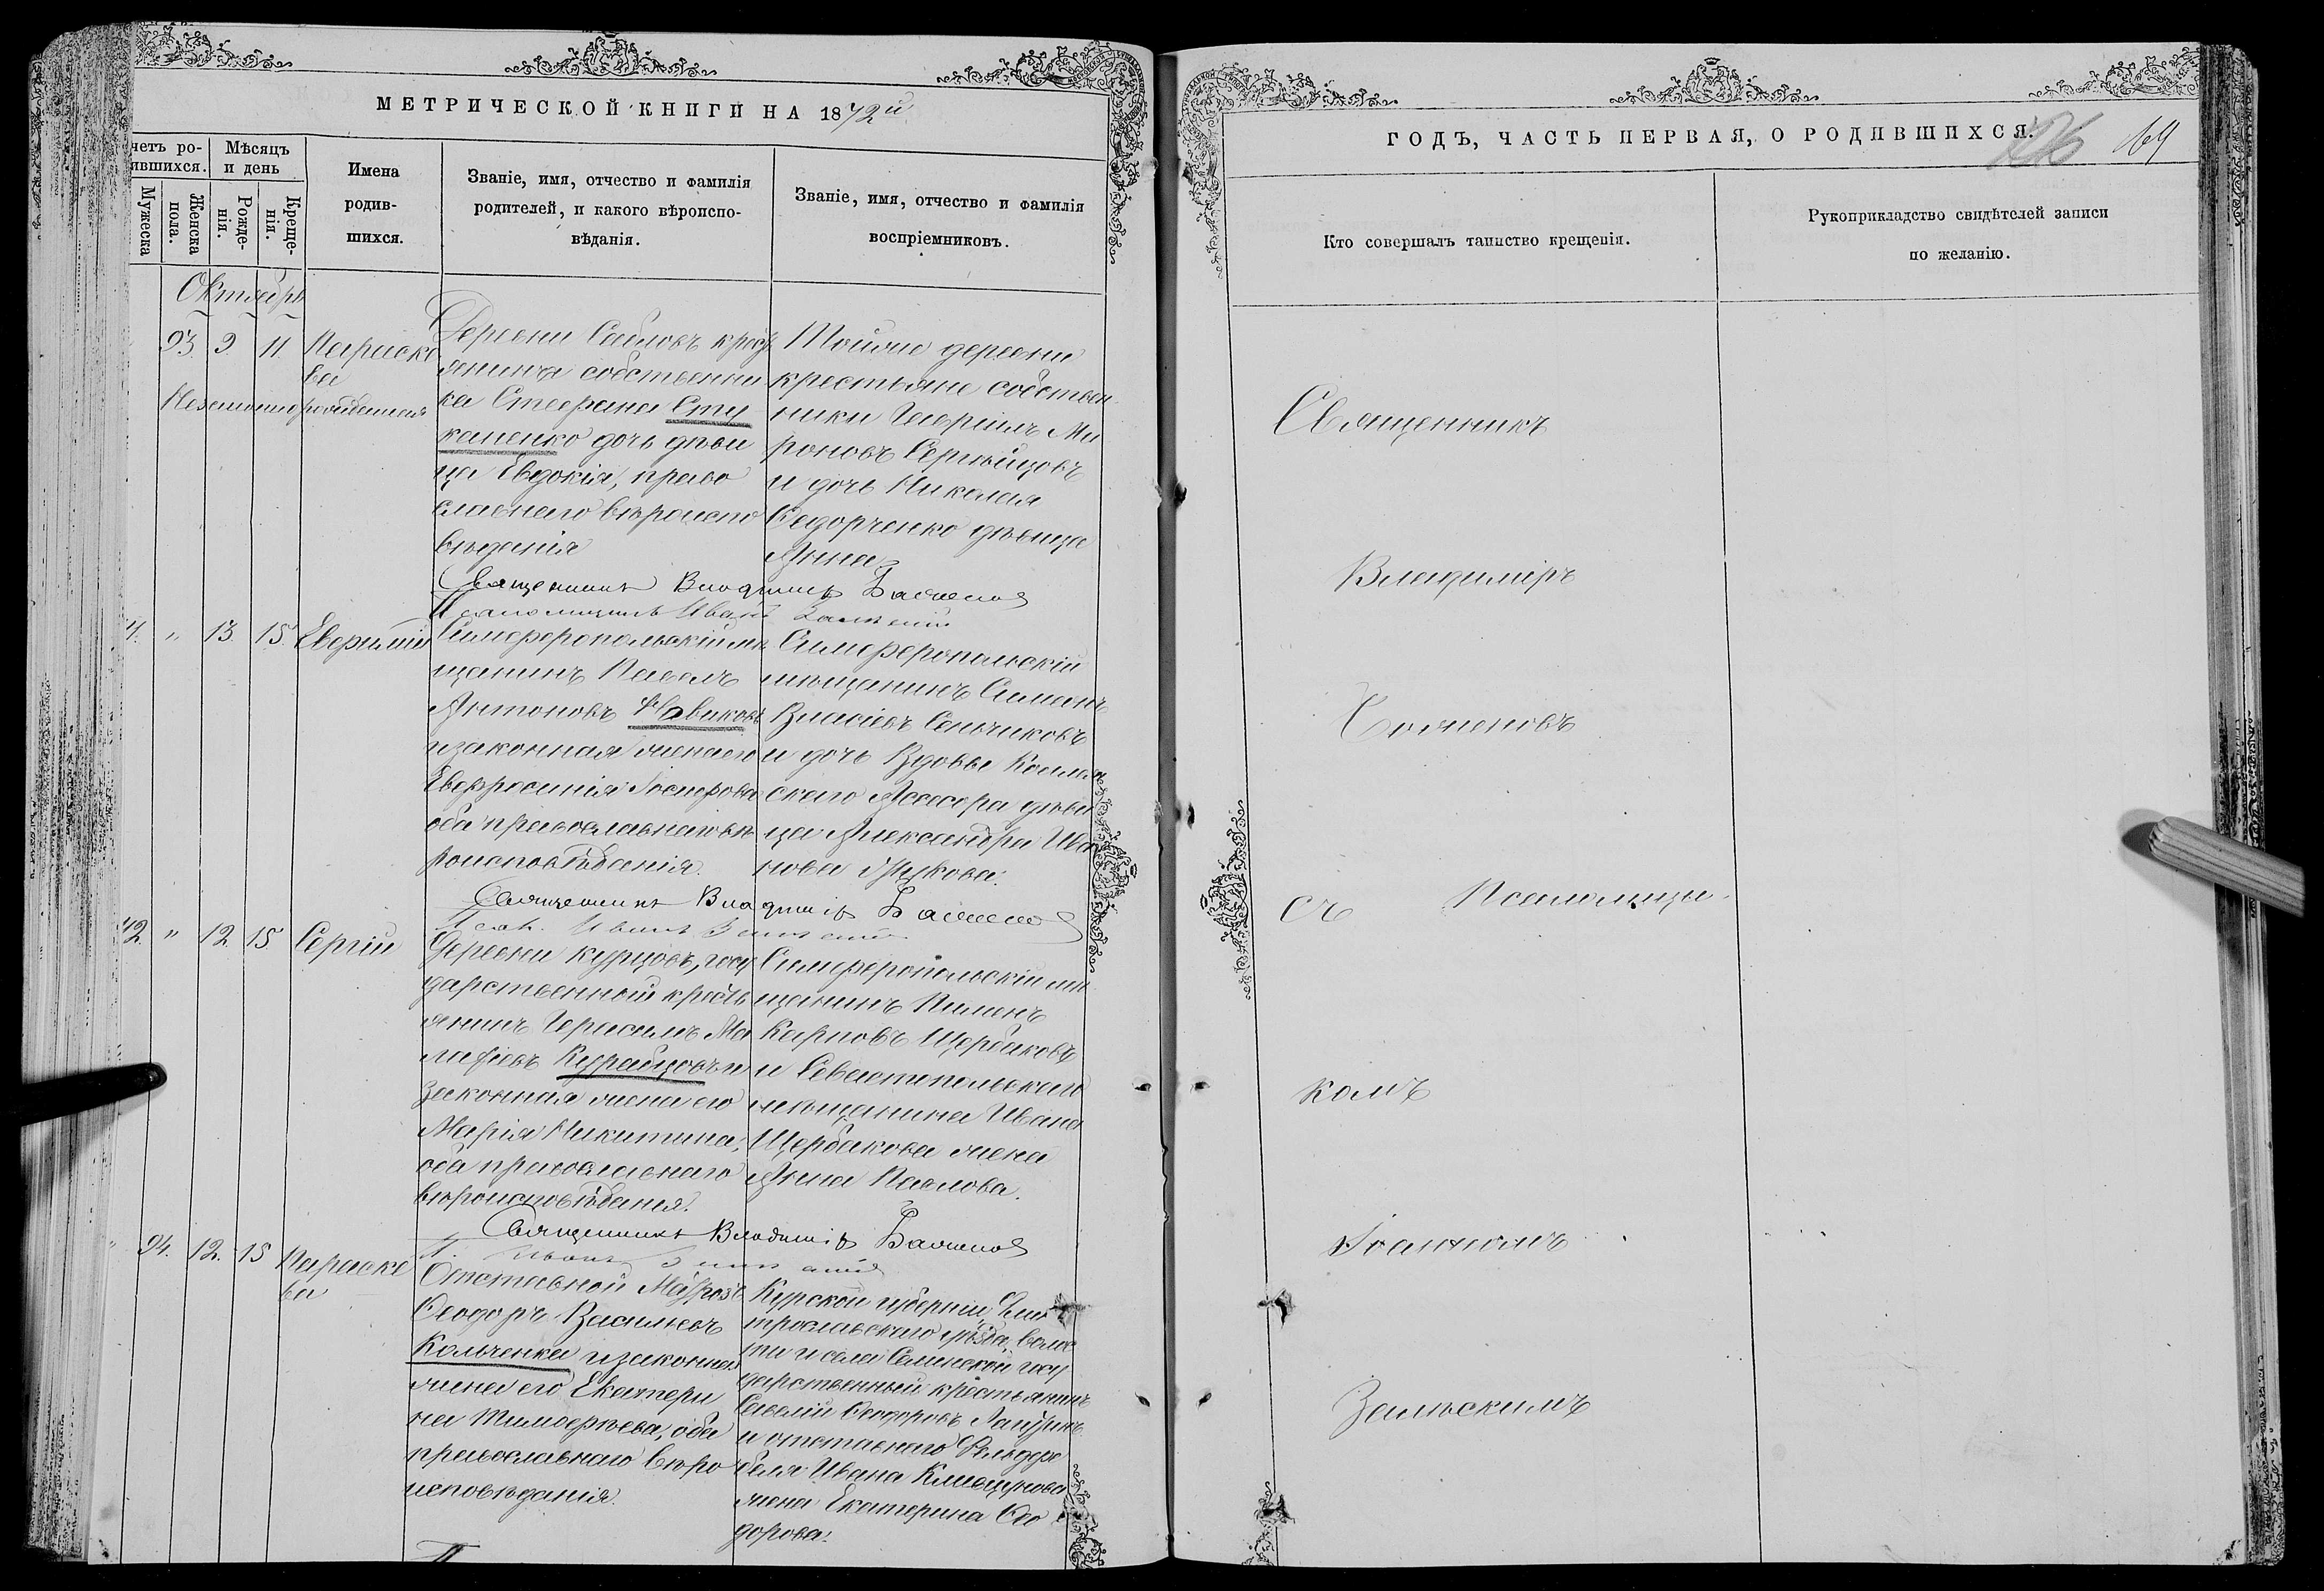 МЕТРИЧЕСКОЙ КНИГИ НА 1872й
четъ ро-
ившихся.
Мѣсяцъ
и день
Мужеска
Женска
пола.
Рожде-
нія.
Креще-
нія.
Имена
родив-
шихся.
Званіе, имя, отчество и фамилія
родителей, и какого вѣроиспо-
вѣданія.
Званіе, имя, отчество и фамилія
воспріемниковъ.
Октябрь
93 9 11. Параске
ва
Незаконнорожденная
Деревни Сабловъ кресть
янина собственни
ка Стефана Сту
каненко дочь дѣви
ца Евдокія, право
славнаго вѣроиспо
вѣданія
Тойже деревни
крестьяне собствен
ники Гавріилъ Ми
роновъ
и дочь Николая
Федорченко дѣвица
Анна
Священникъ Владиміръ Баженовъ
Псаломщикъ Иванъ Залѣскій
4. " 13 15. Евфимій
Симферопольскій мѣ
щанинъ Павелъ
Антоновъ Новиковъ
и законная жена его
Евфросинія Іосифова
оба православнаго вѣ
роисповѣданія.
Симферопольскій
мѣщанинъ Симеонъ
Власіевъ Сенчиковъ
и дочь Вдовы Коллеж
скаго Ассесора дѣви
ца Александра Ива
нова
Священникъ Владиміръ Баженовъ
Псал. Иванъ Залѣскій
42. " 12 15 Сергій
Деревни Курцовъ, госу
дарственной кресть
янинъ Герасимъ Ма
лафіевъ Курабцовъ и
законная жена его
Марія Никитина,
оба православнаго
вѣроисповѣданія.
Симферопольскій мѣ
щанинъ Пименъ
Карповъ Щербаковъ
и Севастопольскаго
мѣщанина Ивана
Щербакова жена
Анна Павлова.
Священникъ Владиміръ Баженовъ
П. Иванъ Залѣскій
" 94. 12. 15 Параске
ва
Отставной Матрозъ
Феодоръ Васильевъ
Кольченко и законная
жена его Екатери
на Тимофѣева, оба
православнаго вѣро
исповѣданія.
Курской губерніи Дми
трославскаго уѣзда, волос
ти и села госу
дарственный крестьянинъ
Савелій Феодоровъ
и отставнаго Фельдфе
беля Ивана
жена Екатерина Фео
дорова.
ГОДЪ, ЧАСТЬ ПЕРВАЯ, О РОДИВШИХСЯ.
169
Кто совершалъ таинство крещенія.
Рукоприкладство свидѣтелей записи
по желанію.
Священникъ
Владиміръ
Баженовъ
съ Псаломщи-
комъ
Іоанномъ
Залѣскимъ